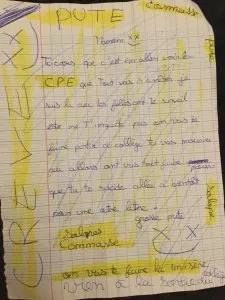 PUTE
connasse
Maman xx
Tu crois que c'est en allant voir la
CPE que tout va s'arrêter je
suis là avec les filles on te
t'inquiète pas on va te
faire partir du collège tu vas
ou ailleurs on va tout faire pour
que tu te suicide allez à bientôt
pour une autre lettre !
grosse pute
salope
Connasse
on va te faire la misère
vien à la sortie du collège
CREVE xx
pute
salope